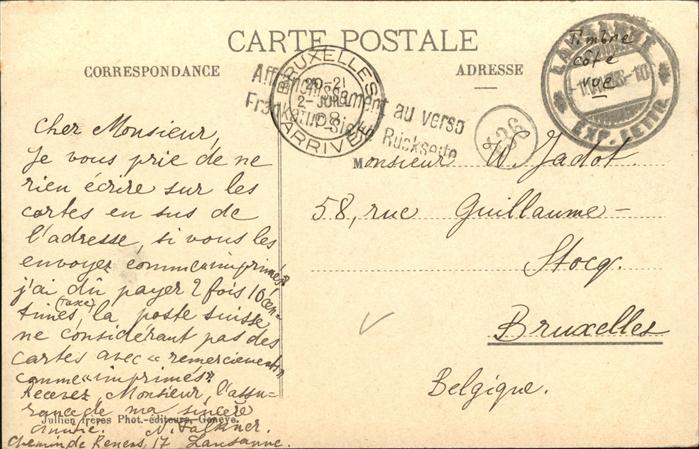 CARTE POSTALE
CORRESPONDANCE
ADRESSE
Timbre
côté
vue
LAUSANNE
EXP. LETTR.
BRUXELLES
20-21
2-JUIN
08
ARRIVÉE
Affranchissement au verso
Frankatur siehe Rückseite
636
Cher Monsieur,
Je vous prie de ne
rien écrire sur les
cartes en sus de
l'adresse, si vous les
envoyez comme «imprimés»
j'ai dû payer 2 fois 10 cen-
times, (taxe) la poste suisse
ne considérant pas des
cartes avec «remerciements»
comme «imprimés»
Recevez, Monsieur, l'assu-
rance de ma sincère
amitié. N. Falkner.
Chemin de Renens, 17 Lausanne.
Monsieur W. Jadot.
58, rue Guillaume-
Stocq.
Bruxelles
Belgique.
Jullien frères Phot.-éditeurs, Genève.